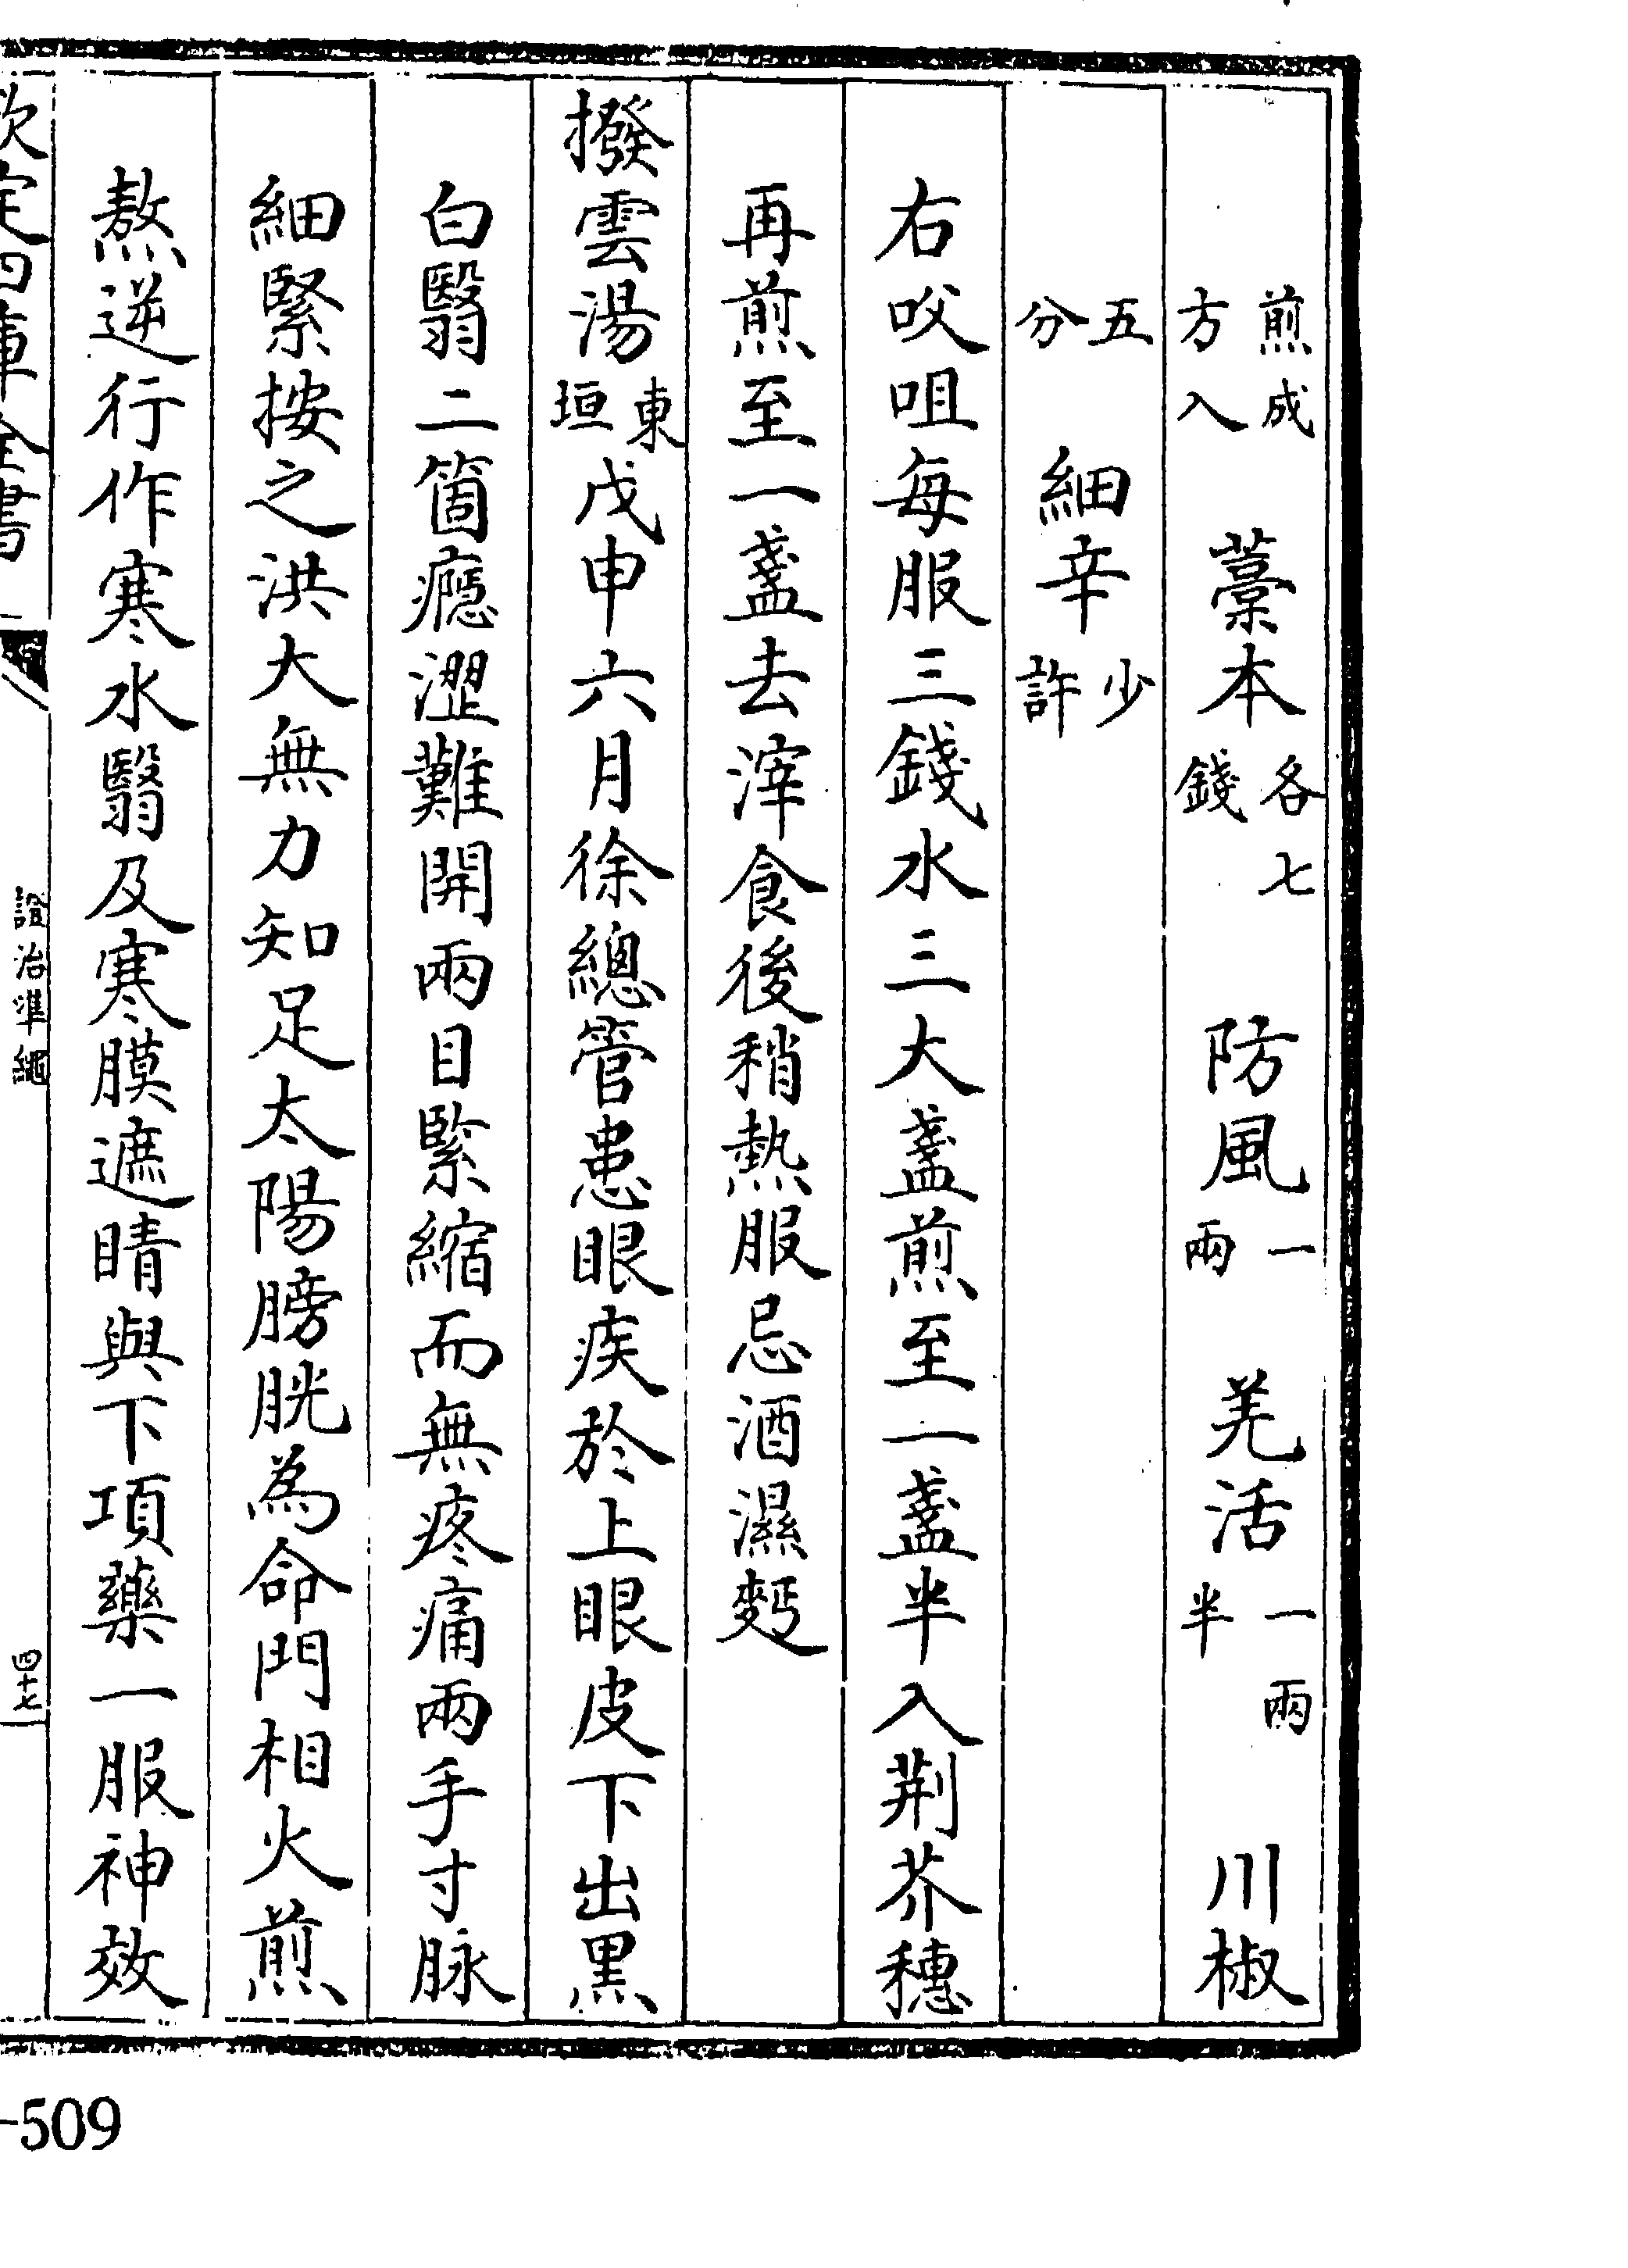 煎成方入 藁本各七錢 防風一兩 羌活一兩半 川椒
五分 細辛少許
右㕮咀每服三錢水三大盞煎至一盞半入荆芥穗
再煎至一盞去滓食後稍熱服忌酒濕麪
撥雲湯東垣戊申六月徐總管患眼疾於上眼皮下出黒
白翳二箇癮澀難開兩目緊縮而無疼痛兩手寸脉
細緊按之洪大無力知足太陽膀胱為命門相火煎
熬逆行作寒水翳及寒膜遮睛與下項藥一服神效
欽定四庫全書
證治準繩
四十七
-509